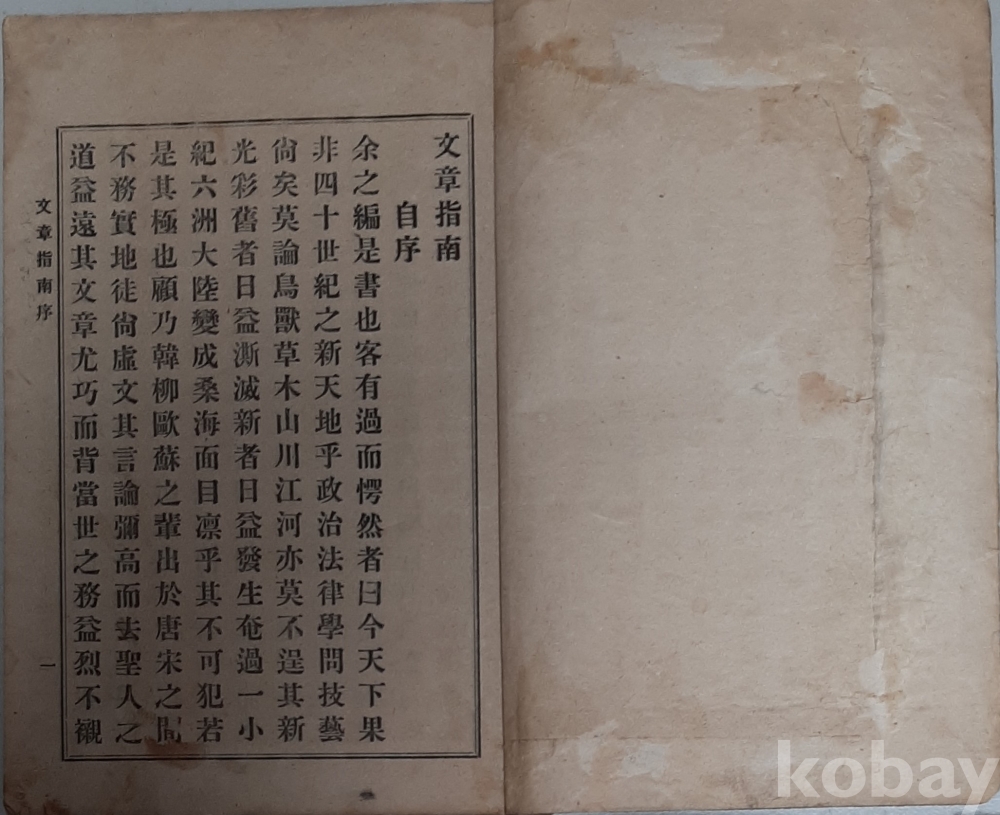 文章指南
自序
余之編是書也客有過而愕然者曰今天下果
非四十世紀之新天地乎政治法律學問技藝
尙矣莫論鳥獸草木山川江河亦莫不逞其新
光彩舊者日益澌滅新者日益發生奄過一小
紀六洲大陸變成桑海面目凛乎其不可犯若
是其極也顧乃韓柳歐蘇之輩出於唐宋之間
不務實地徒尙虛文其言論彌高而去聖人之
道益遠其文章尤巧而背當世之務益烈不襯
文章指南序
一
kobay